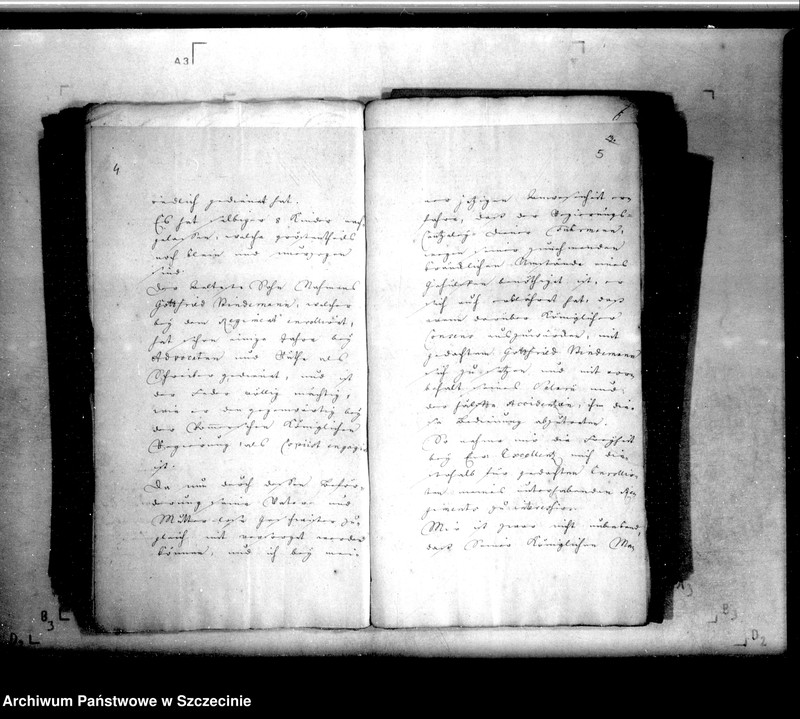 A3
4
redlich gedienet hat.
Es hat selbiger 8 Kinder nach
gelassen, welche größtentheils
noch klein und unerzogen
sind.
Der älteste Sohn Nahmens
Gottfried Stindemann, welcher
bey dem Regiment enrollirt,
hat schon einige Jahre bey
Advocaten und Räthe als
Schreiber gedienet, und ist
der Feder völlig mächtig,
wie er denn gegenwärtig bey
der Pommerschen Königlichen
Regierung als Copiist
ist.
Da nun durch dessen Beför-
derung seine Vater- und
Mutter-lose Geschwister zu-
gleich mit versorget werden
können, und ich bey mein
5
er jetzigen Anwesenheit er
fahren, daß der Regierungs-
wegen seiner zunehmenden
kränklichen Umstände eines
Gehülfen benöthiget ist, er
sich auch erklähret hat, daß
wenn darüber Königlicher
Consens auszuwürken, mit
gedachtem Gottfried Stindemann
sich zu setzen und mit vor-
behalt seines Salarii und
der Hälfte Accidentien, ihm die-
se Bedienung abzutreten.
So nehme mir die Freyheit
bey Ew. Excellentz mich dies-
erhalb für gedachten Enrollir-
ten meines unterhabenden Re-
giments zu
Mir ist zwar nicht unbekand,
daß Seiner Königlichen Ma-
B3
D2
A3
B3
D2
Archiwum Państwowe w Szczecinie